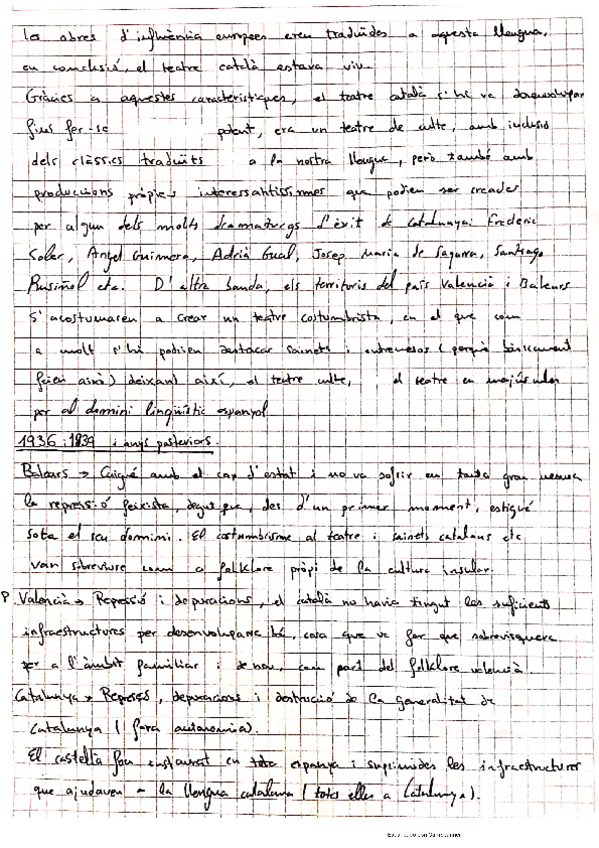 les obres d'influència europees eren traduïdes a aquesta llengua,
en conclusió, el teatre català estava viu.
Gràcies a aquestes característiques, el teatre català s'hi va desenvolupar
fins fer-se potent, era un teatre de culte, amb inclusió
dels clàssics traduïts a la nostra llengua, però també amb
produccions pròpies interessantíssimes que podien ser creades
per algun dels molts dramaturgs d'èxit de Catalunya: Frederic
Soler, Angel Guimera, Adrià Gual, Josep Maria de Sagarra, Santiago
Rusiñol etc. D'altra banda, els territoris del país Valencià i Balears
s'acostumaren a crear un teatre costumbrista, en el que com
a molt s'hi podrien destacar sainets i entremesos (perquè bàsicament
feien això) deixant així, el teatre culte, el teatre en majúscules
per al domini lingüístic espanyol
1936 : 1939 i anys posteriors.
Balears → Caigué amb el cop d'estat i no va sofrir en tanta gran mesura
la repressió feixista, degut que, des d'un primer moment, estigué
sota el seu domini. El costumbrisme al teatre i sainets catalans etc
van sobreviure com a folklore pròpi de la cultura insular.
P. Valencià → Repressió i depuracions, el català no havia tingut les suficients
infraestructures per desenvolupar-se bé, cosa que va fer que sobrevisquera
per a l'àmbit familiar i de nou, com part del folklore valencià.
Catalunya → Repressió, depuracions i destrucció de la generalitat de
Catalunya (fora autonomia).
El castellà fou instaurat en tota espanya i suprimides les infraestructures
que ajudaven a la llengua catalana (totes elles a Catalunya).